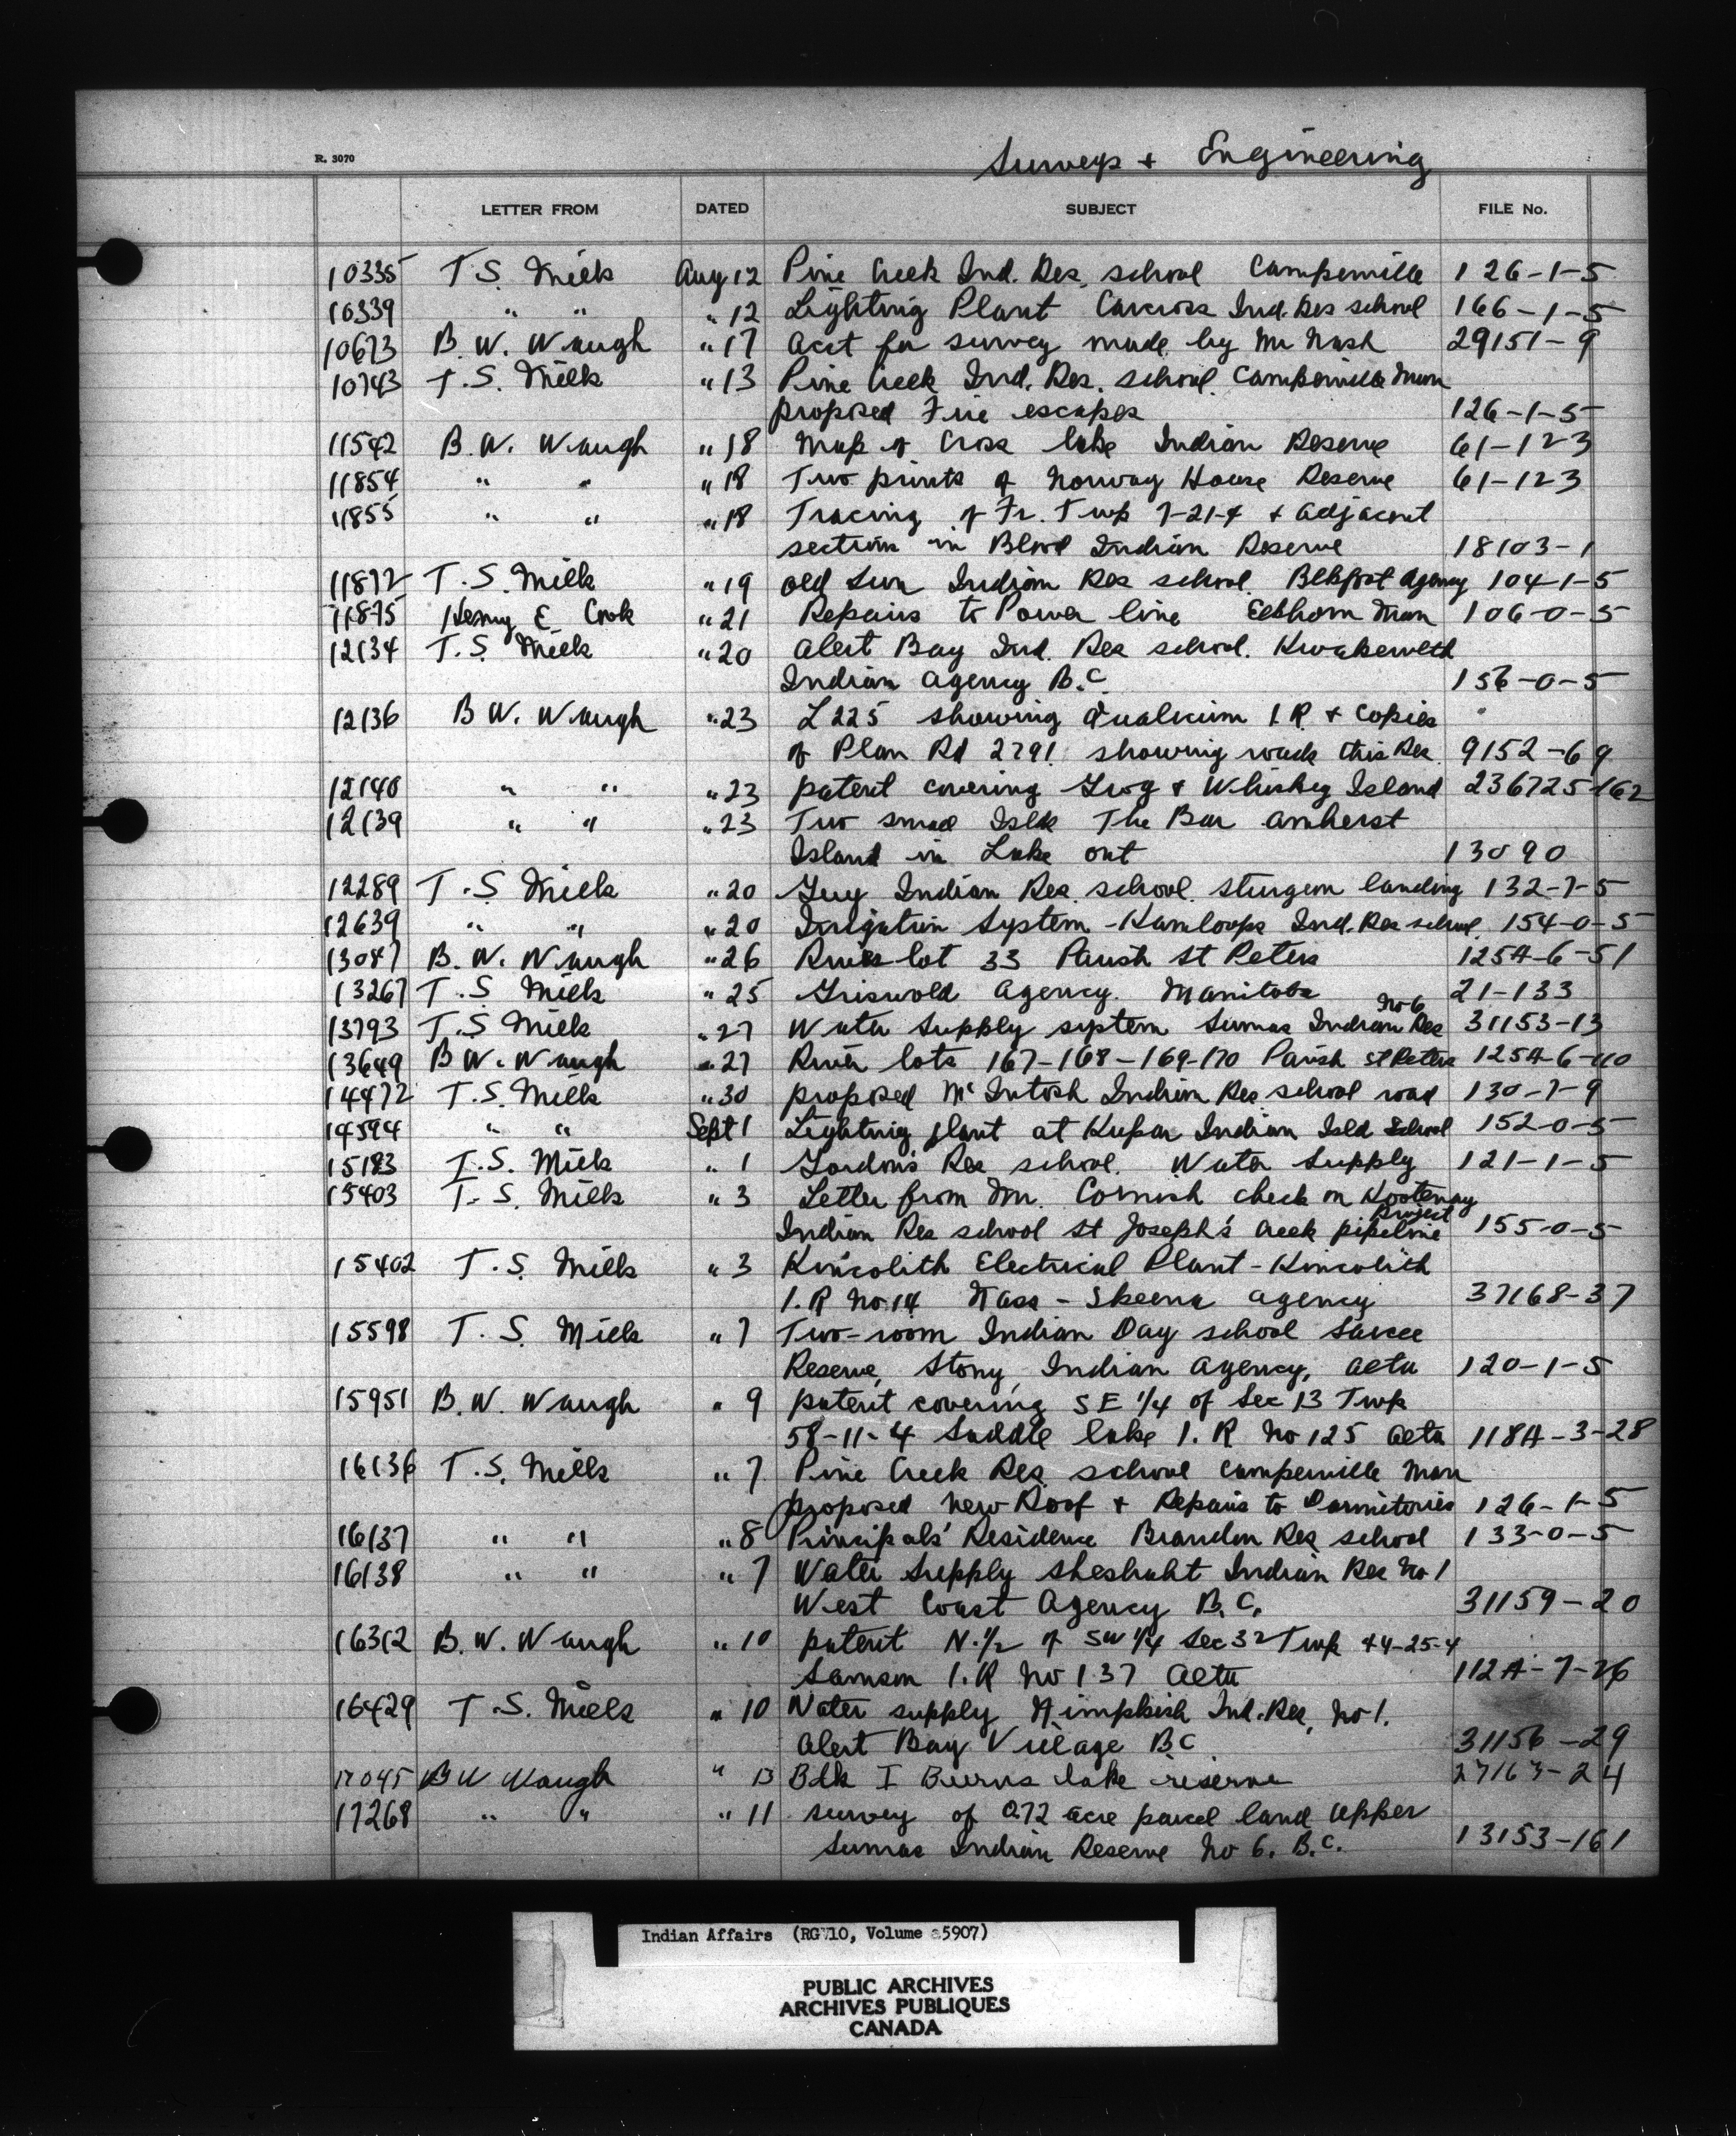 Surveys + Engineering
R. 3070
LETTER FROM DATED SUBJECT FILE No.
10335 T.S. Mills Aug 12 Pine Creek Ind. Res. school Camperville 126-1-5
10339 " " " 12 Lighting Plant Carcross Ind. Res school 166-1-5
10673 B.W. Waugh " 17 Acct for survey made by Mr Nash 29151-9
10743 T.S. Mills " 13 Pine Creek Ind. Res. school Camperville Man
proposed Fire escapes 126-1-5
11542 B.W. Waugh " 18 Map of Cross lake Indian Reserve 61-123
11854 " " " 18 Two prints of Norway House Reserve 61-123
11855 " " " 18 Tracing of Fr. Twp 7-21-4 + adjacent
section in Blood Indian Reserve 18103-1
11872 T.S. Mills " 19 old Sun Indian Res school. Blkfoot Agency 104-1-5
11875 Henry E Cook " 21 Repairs to Power line Elkhorn Man 106-0-5
12134 T.S. Mills " 20 Alert Bay Ind. Res school. Kwakewlth
Indian Agency B.C. 156-0-5
12136 B W. Waugh " 23 L 225 showing Qualicum I.R + copies
of Plan Rd 2791 showing roads this Res. 9152-69
12140 " " " 23 patent covering Grog + Whiskey Island 236725-162
12139 " " " 23 Two small Islds The Bar Amherst
Island in Lake Ont 13090
12289 T.S Mills " 20 Guy Indian Res. school. Sturgeon landing 132-7-5
12639 " " " 20 Irrigation System - Kamloops Ind. Res school 154-0-5
13047 B.W. Waugh " 26 River lot 33 Parish St Peters 125A-6-51
13267 T.S. Mills " 25 Griswold Agency. Manitoba 21-133
13793 T.S Mills " 27 Water Supply system Sumas Indian Res No 6 31153-13
13649 B W. Waugh " 27 River lots 167-168-169-170 Parish St Peters 125A-6-110
14472 T.S. Mills " 30 proposed McIntosh Indian Res. school road 130-7-9
14594 " " Sept 1 Lighting plant at Kuper Indian Isld School 152-0-5
15183 T.S. Mills " 1 Gordon's Res school. Water Supply 121-1-5
15403 T.S. Mills " 3 Letter from Mr. Cornish check on Kootenay
Indian Res school St Joseph's Creek pipeline Project 155-0-5
15402 T.S. Mills " 3 Kincolith Electrical Plant - Kincolith
I.R No 14 Nass - Skeena agency 37168-37
15598 T.S. Mills " 7 Two-room Indian Day school Sarcee
Reserve, Stony Indian Agency, Alta 120-1-5
15951 B.W. Waugh " 9 patent covering SE 1/4 of Sec 13 Twp
58-11-4 Saddle lake I.R No 125 Alta 118A-3-28
16136 T.S. Mills " 7 Pine Creek Res. school Camperville Man
proposed New Roof + Repairs to Dormitories 126-1-5
16137 " " " 8 Principals' Residence Brandon Res school 133-0-5
16138 " " " 7 Water Supply Sheshaht Indian Res No 1
West Coast Agency B.C. 31159-20
16312 B.W. Waugh " 10 patent N.1/2 of SW 1/4 Sec 32 Twp 44-25-4
Samson I.R No 137 Alta 112A-7-26
16429 T.S. Mills " 10 Water supply Nimpkish Ind. Res, No 1.
Alert Bay Village B.C 31156-29
17045 B W Waugh " 13 Blk I Burns lake reserve 27163-24
17268 " " " 11 survey of 0.72 acre parcel land Upper
Sumas Indian Reserve No 6. B.C. 13153-161
Indian Affairs (RG 10, Volume 5907)
PUBLIC ARCHIVES
ARCHIVES PUBLIQUES
CANADA